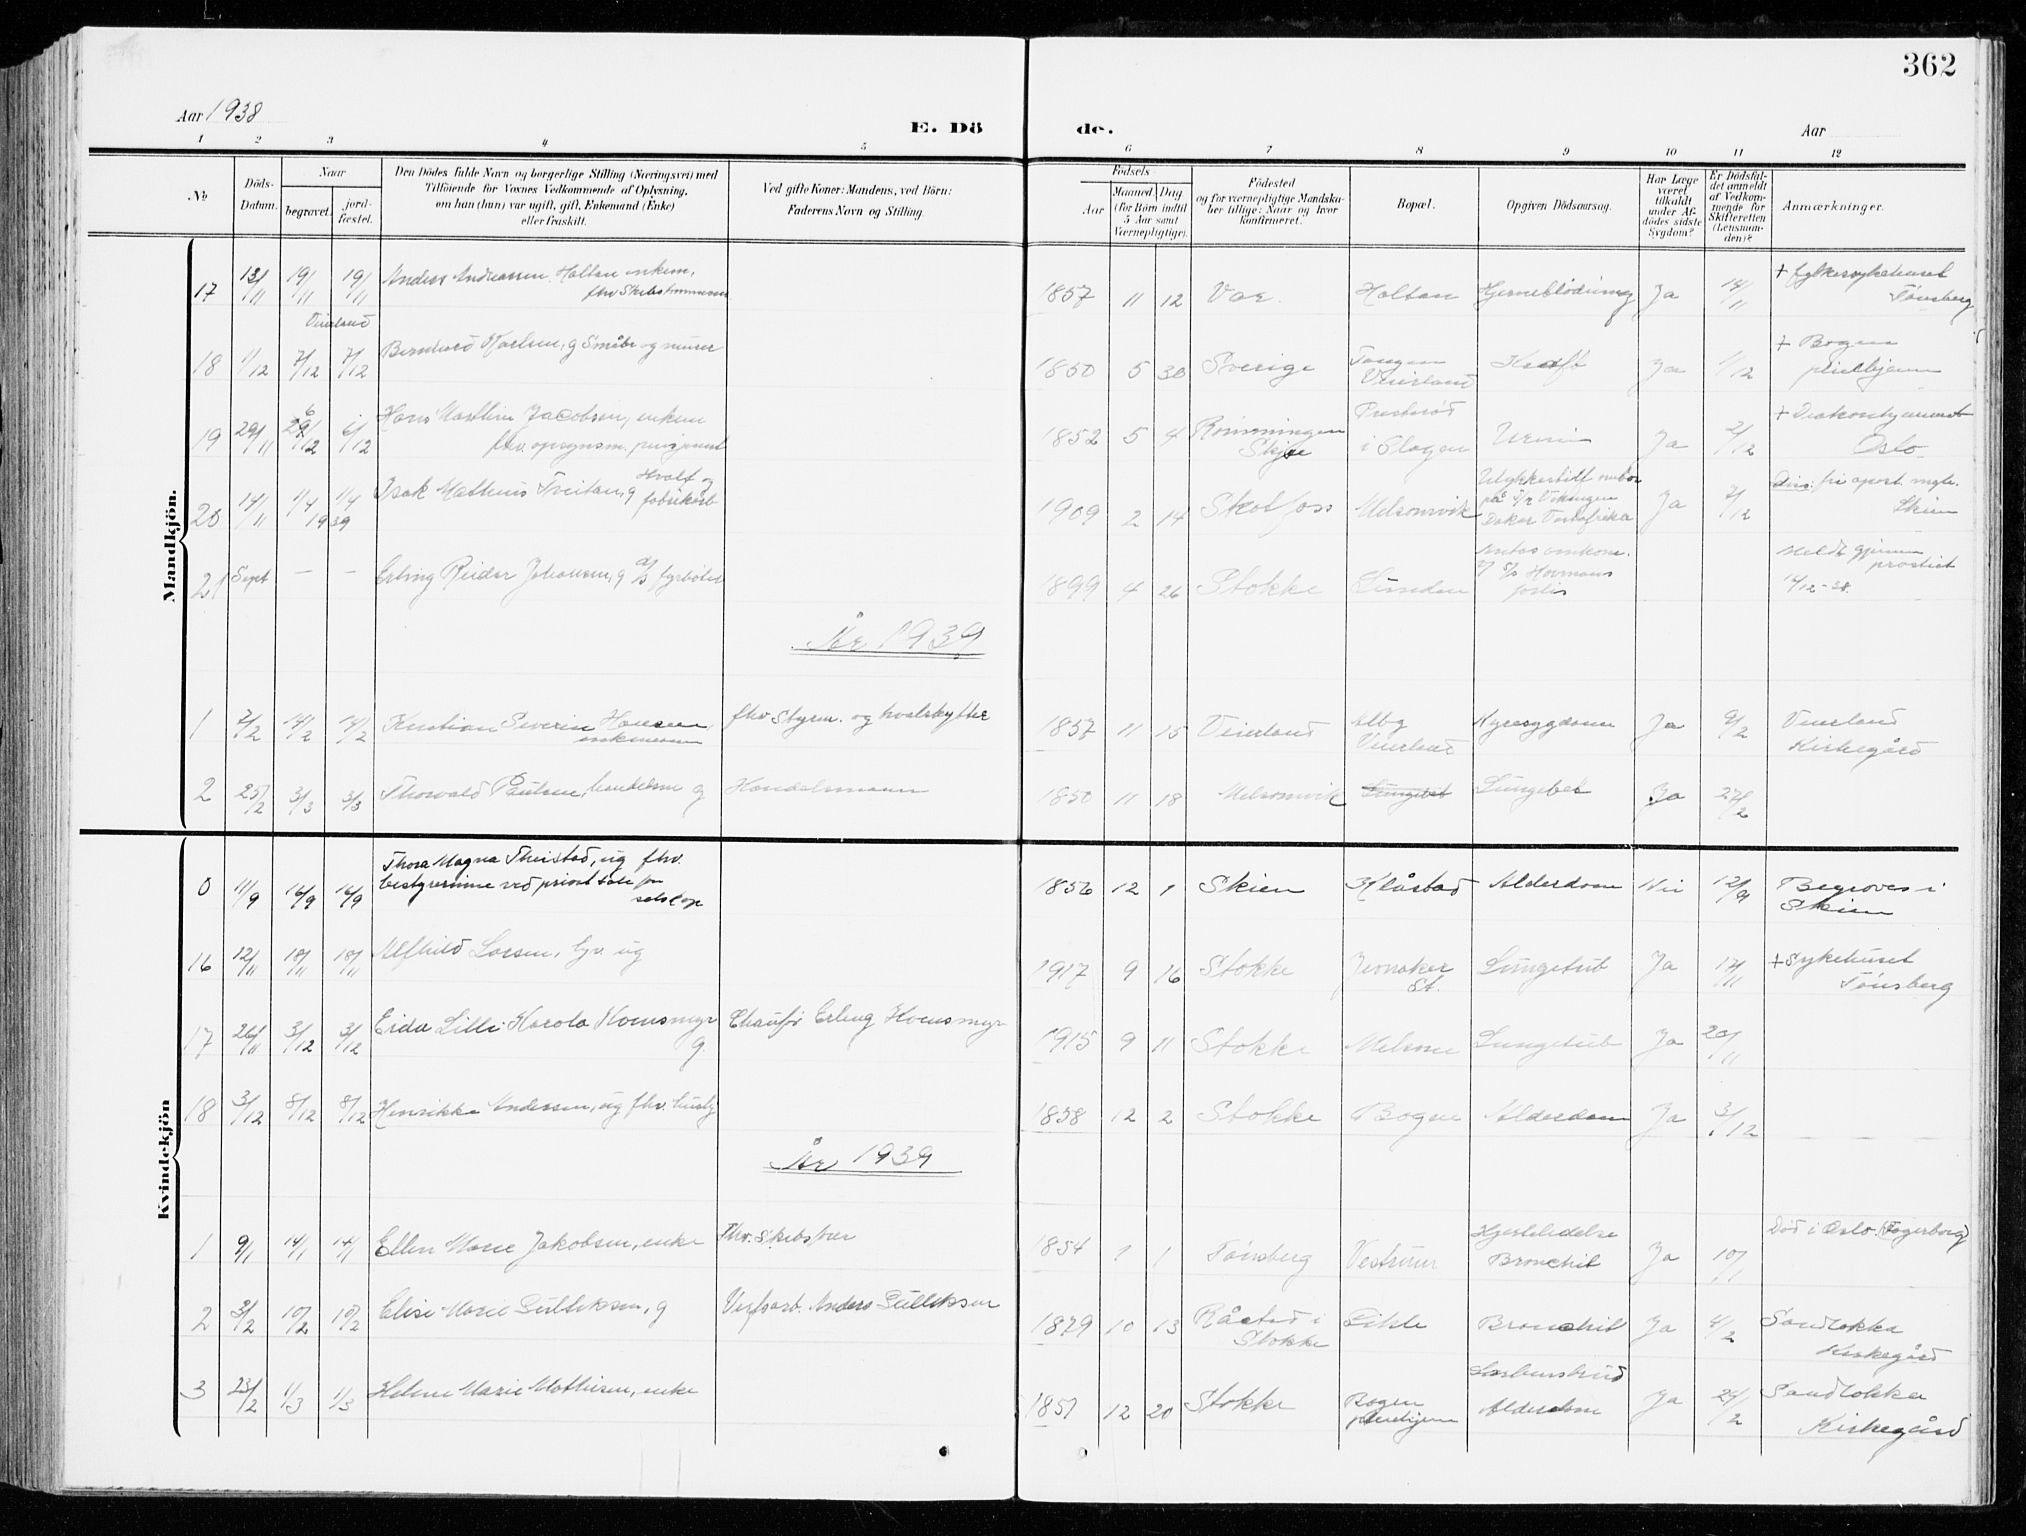 362
Aar 1938
E. Dö
de.
Aar
1 2 3 4 5 6 7 8 9 10 11 12
No
Döds-
Datum.
Naar
begravet.
jord-
fæstet.
Den Dödes fulde Navn og borgerlige Stilling (Næringsvei) med
Tilföiende for Voxnes Vedkommende af Oplysning,
om han (hun) var ugift, gift, Enkemand (Enke)
eller fraskilt.
Ved gifte Koner: Mandens, ved Börn:
Faderens Navn og Stilling.
Födsels
Aar
Maaned. Dag
(for Börn indtil
5 Aar samt
Værnepligtige).
Födested
og for værnepligtige Mandska-
ber tillige: Naar og hvor
konfirmeret.
Bopæl.
Opgiven Dödsaarsag.
Har Læge
været
tilkaldt
under Af-
dödes sidste
Sygdom?
Er Dödsfal-
det anmeldt
af Vedkom-
mende for
Skifteretten
(Lensman-
den)?
Anmærkninger.
Mandkjön.
17 13/11 19/11 19/11 Anders Andreassen Holtan enkem. 1857 11 12 Holtan Hjerneblödning Ja 14/11 + fylkessykehuset
Tönsberg
Veierland
18 1/12 7/12 7/12 Bernhard Karlsen, g Småbr og murer 1850 5 30 Sverige Tangen
Veierland Ja 1/12 + Bogen
pleiehjem
19 29/11 6/12 6/12 Hans Marthin Jacobsen, enkem
fhv. opsynsm. 1852 5 4 Rönningen
i Slagen Uremi Ja 2/12 + Diakonhjemmet
Oslo
20 14/11 1/4 1/4 1939 Isak Mathius Tveitan, g Hvalf og
fabrikarb 1909 2 14 Skotfoss Melsomvik
Dakar Vestafrika Ja 7/12
Skien
21 Sept – – Erling Reidar Johansen, g fyrböter 1899 4 26 Stokke Sunden Antas omkom.
forlis Meldt gjennem
prostiet
14/12-38.
År 1939
1 7/2 14/2 14/2 Kristian Severin Hansen
enkemann fhv Styrm. og hvalskytter 1857 11 15 Veierland
Veierland Nyresygdom Ja 9/2 Veierland
Kirkegård
2 25/2 3/3 3/3 Thorvald Paulsen, handelsm g Handelsmann 1850 11 18 Melsomvik Lungebet Ja 27/2
Kvindekjön
0 11/9 16/9 16/9 Thora Magna Theistad, ug fhv.
bestyrerinne ved privat
selskap 1856 12 1 Skien Klåstad Alderdom Nei 12/9 Begraves i
Skien
16 12/11 18/11 18/11 Alfhild Larsen, ug 1917 9 16 Stokke
St. Lungetub Ja 17/11 + Sykehuset
Tönsberg
17 26/11 3/12 3/12 Lilli Karola Hoensmyr
g. Chauför Erling Hoensmyr 1915 9 11 Stokke Melsom Lungetub Ja
18 3/12 8/12 8/12 Henrikke Andersen, ug fhv. 1858 12 2 Stokke Bogen Alderdom Ja 3/12
År 1939
1 9/1 14/1 14/1 Ellen Marie Jakobsen, enke Fhv. Skibsförer 1854 1 1 Tönsberg Vestrum Hjertelidelse
Bronchit Ja 10/1 Död i Oslo. (Fagerborg)
2 3/2 10/2 10/2 Elise Marie Gulliksen, g Verfsarb. Anders Gulliksen 1879 10 13 Råstad i
Stokke Bronchit Ja 4/2 Sandlokka
Kirkegård
3 23/2 1/3 1/3 Helene Marie Mathisen, enke 1851 12 20 Stokke Bogen
pleiehjem Lårbensbrud
Alderdom Ja 24/2 Sandlokka
Kirkegård